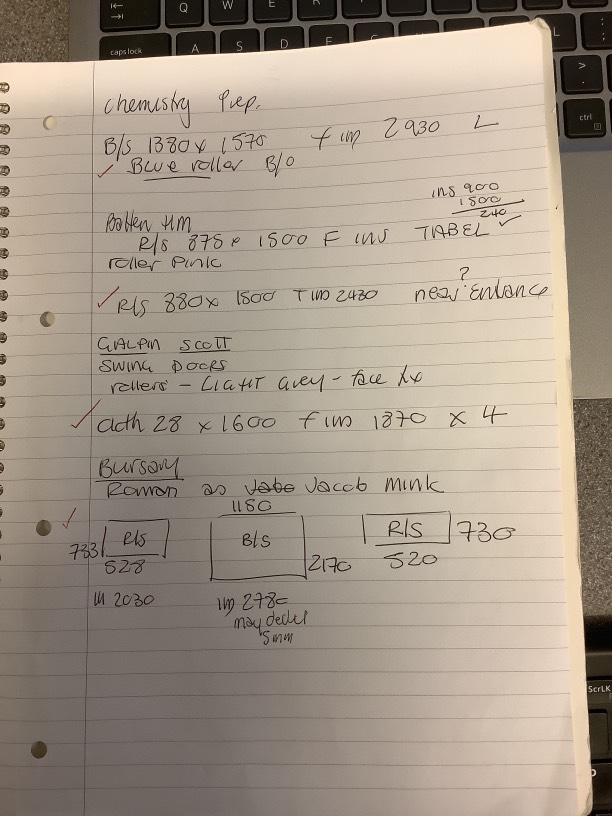 Chemistry Prep.
B/s 1380 x 1570 f im 2930 L
✓ Blue roller B/O
ins 900
1500
240
Batten HM
R/s 875 x 1500 F ins TABEL ✓
roller Pink
?
✓ R/s 880 x 1500 T im 2430 near Entrance
GALPIN SCOTT
SWING DOORS
rollers - LIGHT Grey - face fix
✓ 28 x 1600 f im 1870 x 4
Bursary
Roman as Jacob Mink
1180
✓ 733 R/s B/s R/s 730
528 2170 520
2030 im 278
may deduct
5mm
Q W E
caps lock A S D F L
ctrl
ScrLK